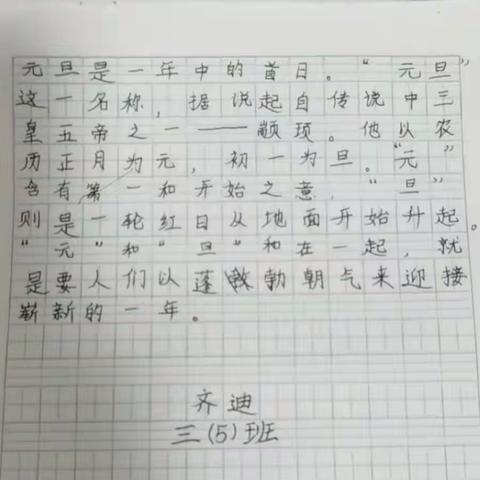 元旦是一年中的首日。“元旦”
这一名称，据说起自传说中三
皇五帝之一——颛顼。他以农
历正月为元，初一为旦。“元”
含有第一和开始之意，“旦”
则是一轮红日从地面开始升起。
“元”和“旦”和在一起，就
是要人们以蓬敦勃朝气来迎接
崭新的一年。
齐迪
三(5)班